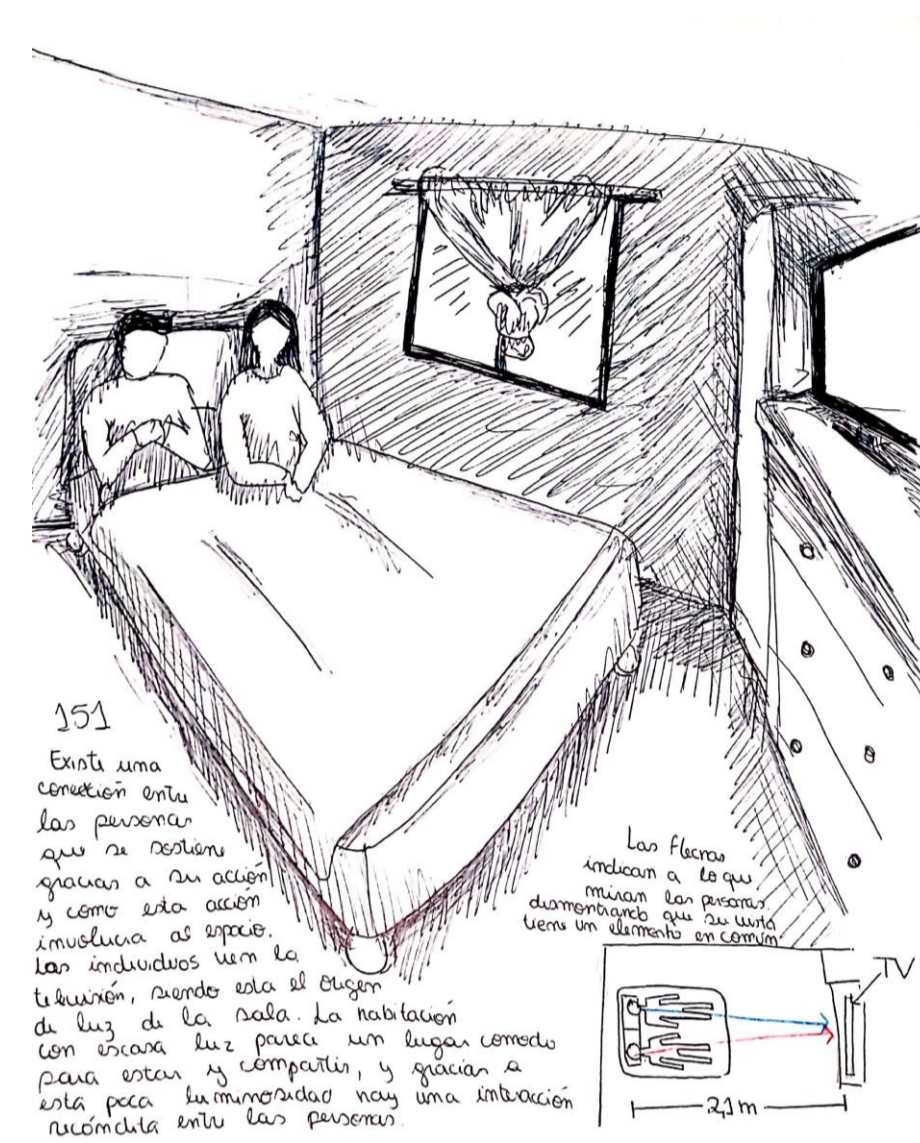 151
Existe una
conexión entre
las personas
que se sostiene
gracias a su acción
y como esta acción
involucra al espacio.
Los individuos ven la
televisión, siendo esta el origen
de luz de la sala. La habitación
con escasa luz parece un lugar comodo
para estar y compartir, y gracias a
esta poca luminosidad hay una interacción
recóndita entre las personas.
Las flechas
indican a lo que
miran las personas,
demostrando que su vista
tiene un elemento en común
TV
2,1 m